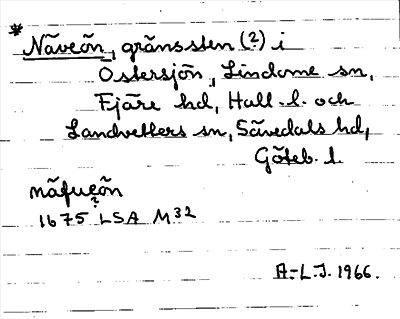 * Näveön, gränssten (?) i
Östersjön, Lindome sn,
Fjäre hd, Hall. l. och
Landvetters sn, Sävedals hd,
Göteb. l.
näfueön
?
1675 LSA M32
A.-L.J. 1966.